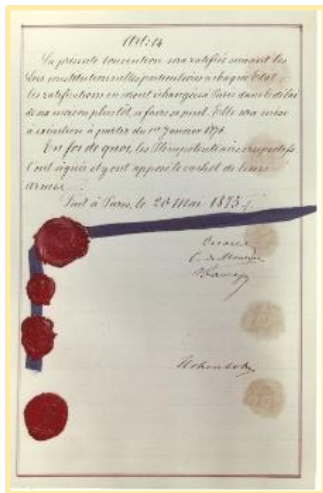 Art: 14
La présente convention sera ratifiée suivant les
lois constitutionnelles particulières à chaque Etat;
les ratifications en seront échangées à Paris dans le délai
de six mois ou plus tôt, si faire se peut. Elle sera mise
à exécution à partir du 1er Janvier 1876.
En foi de quoi, les Plénipotentiaires respectifs
l'ont signée et y ont apposé le cachet de leurs
armes.
Fait à Paris, le 20 Mai 1875.
Decazes
C. de Meaux
Dumas
Hohenlohe